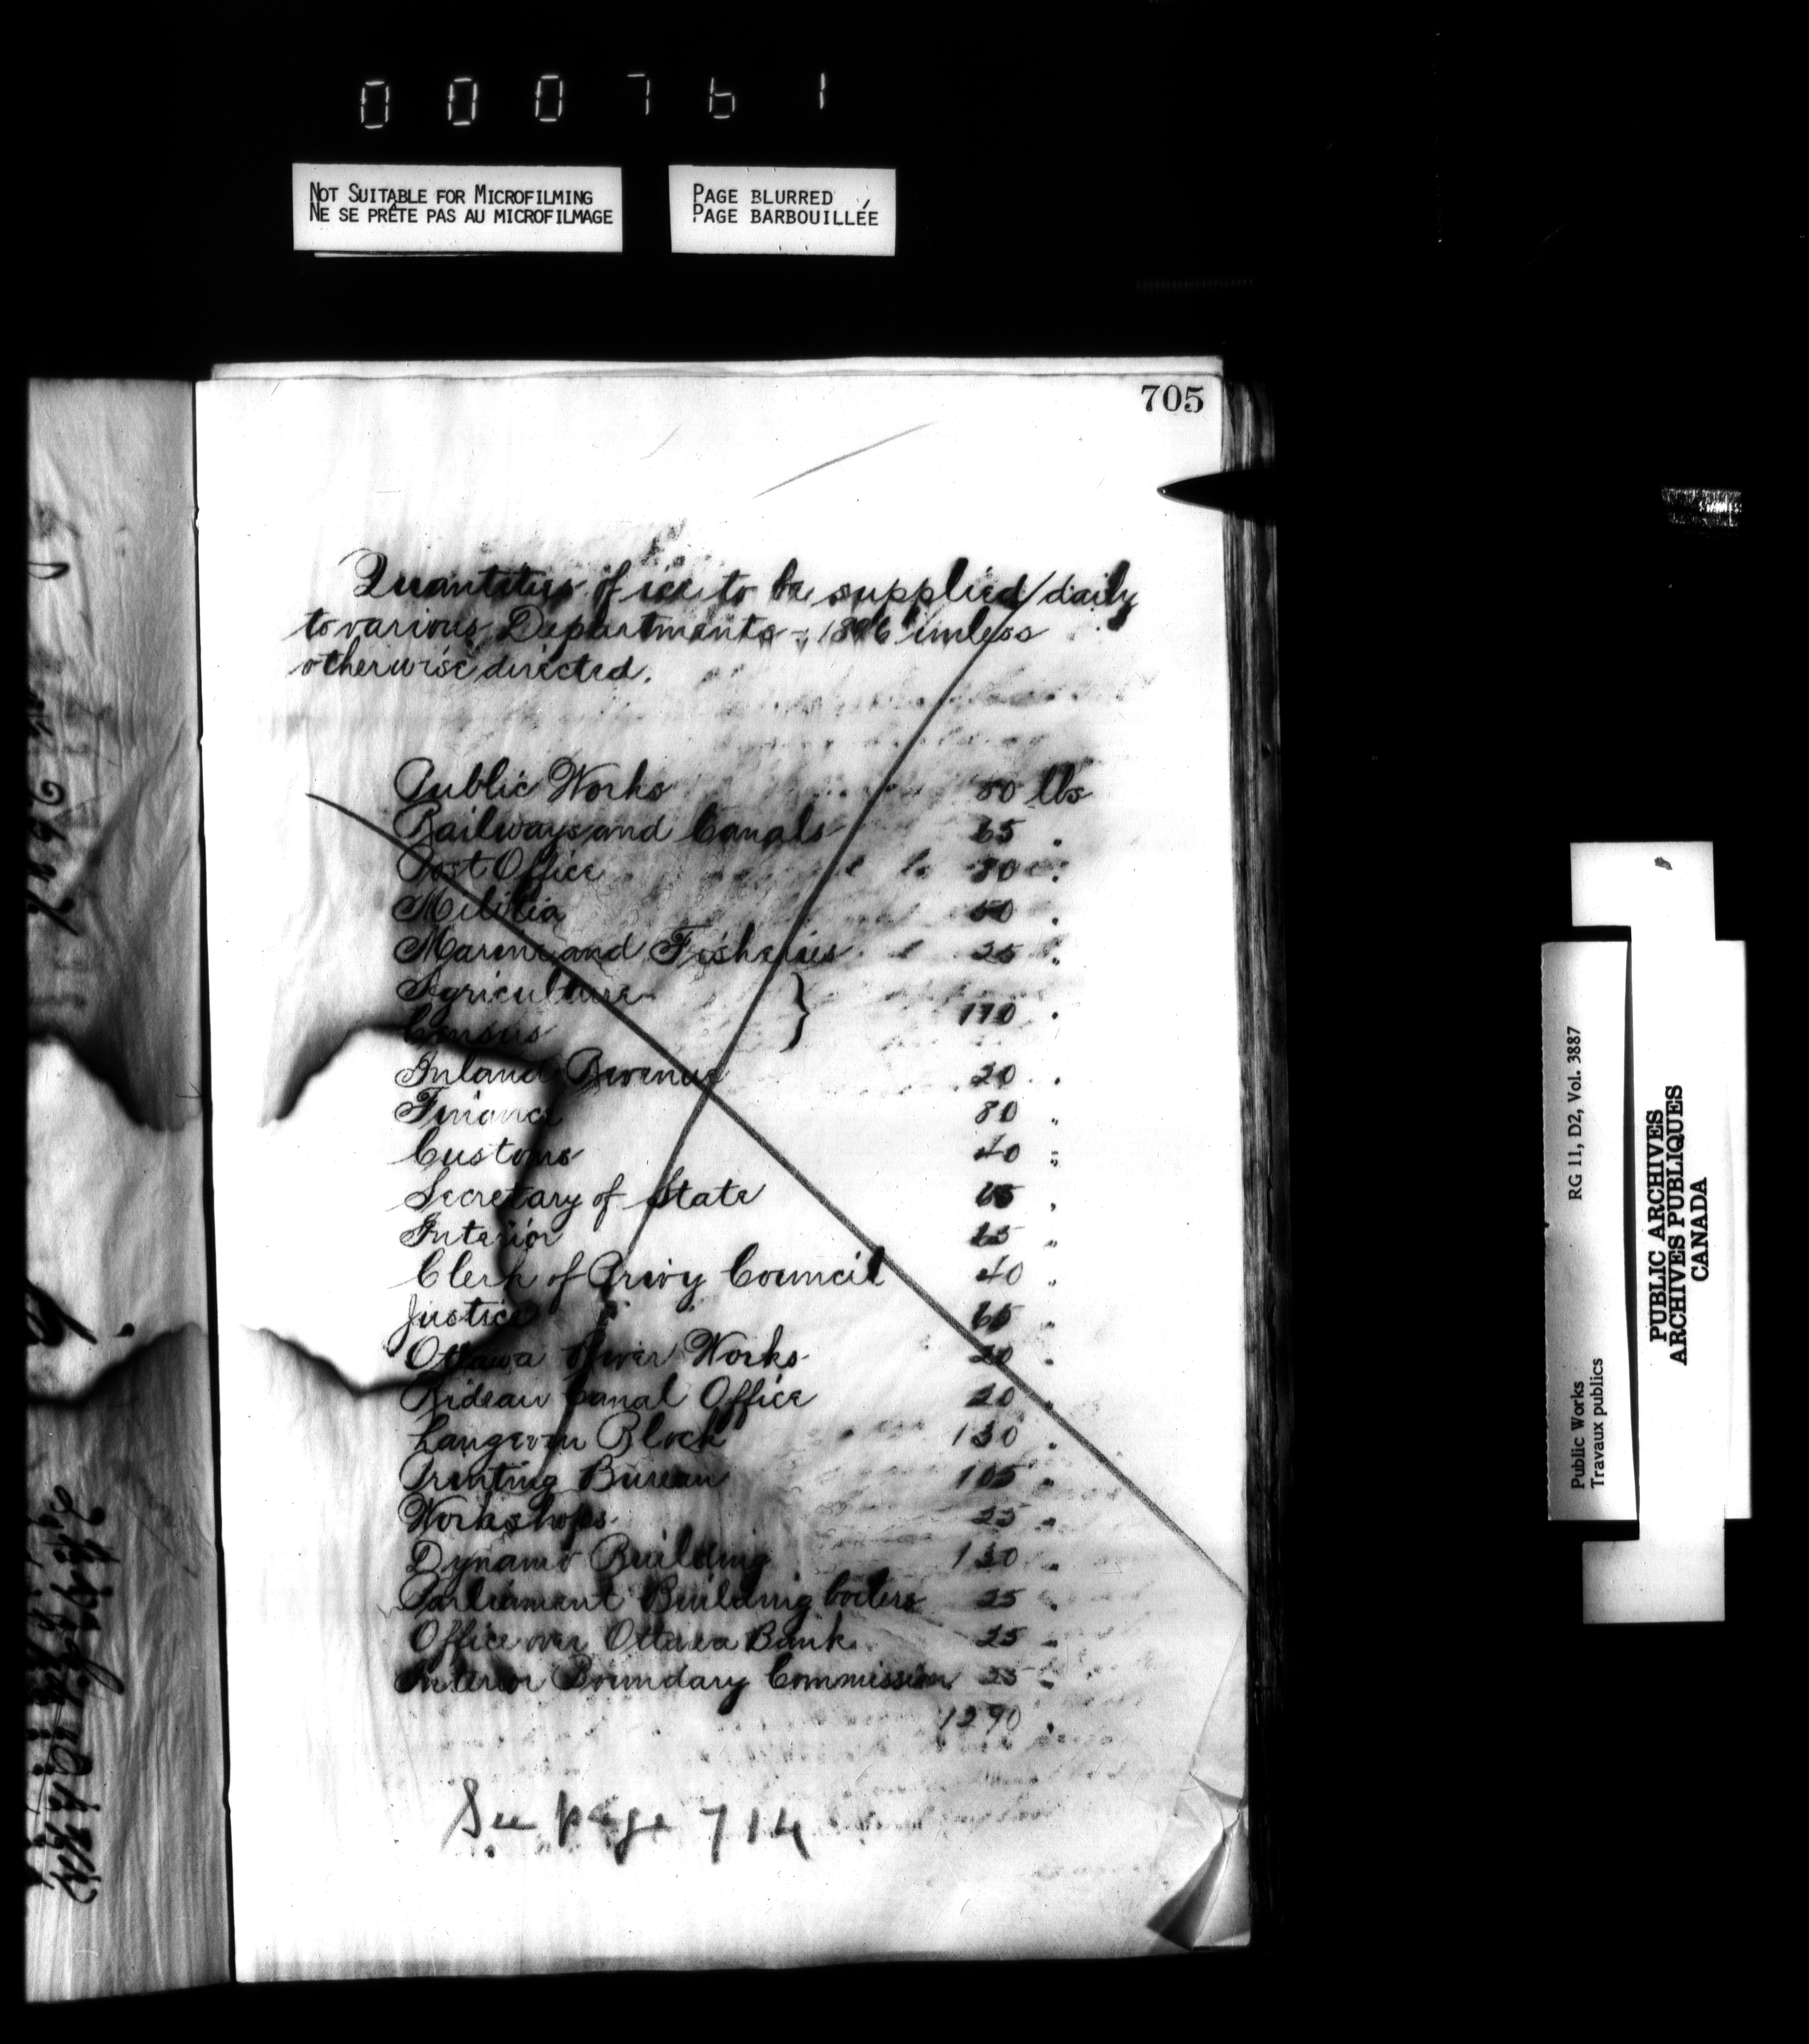 000761
NOT SUITABLE FOR MICROFILMING
NE SE PRÊTE PAS AU MICROFILMAGE
PAGE BLURRED
PAGE BARBOUILLÉE
705
Quantities of ice to be supplied daily
to various Departments - 1896 unless
otherwise directed.
Public Works lbs
Railways and Canals 65 "
Post Office 80 "
Militia "
Marine and Fisheries 25 "
Agriculture
Census } "
Inland Revenue 20 "
Finance 80 "
Customs 40 "
Secretary of State "
Interior "
Clerk of Privy Council 40 "
Justice "
Ottawa River Works 20 "
Rideau Canal Office 20 "
Langevin Block 130 "
Printing Bureau 105 "
Workshops 25 "
Dynamo Building 130 "
Parliament Building boilers 25 "
Office over Ottawa Bank 25 "
Interior Boundary Commission 25 "
1290 "
See page 714
RG 11, D2, Vol. 3887
Public Works
Travaux publics
PUBLIC ARCHIVES
ARCHIVES PUBLIQUES
CANADA